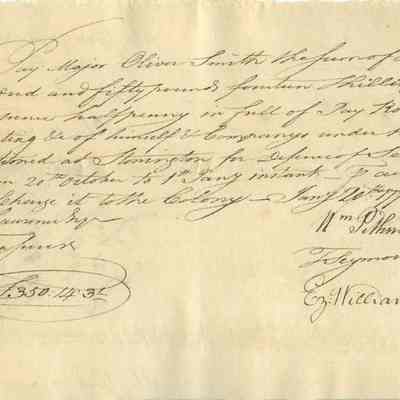 Pay Major Oliver Smith the sum of
and fifty pounds fourteen Shilli
pence half penny in full of Pay Ro
ting &c of himself & Companys under
ioned at Stonington for Defence of Se
m 20th October to 1st Jany instant
Charge it to the Colony — Jany 20th 177
Lawrence Esqr
Wm Pitkin
T Seymou
Ez: William
£350.14.3½